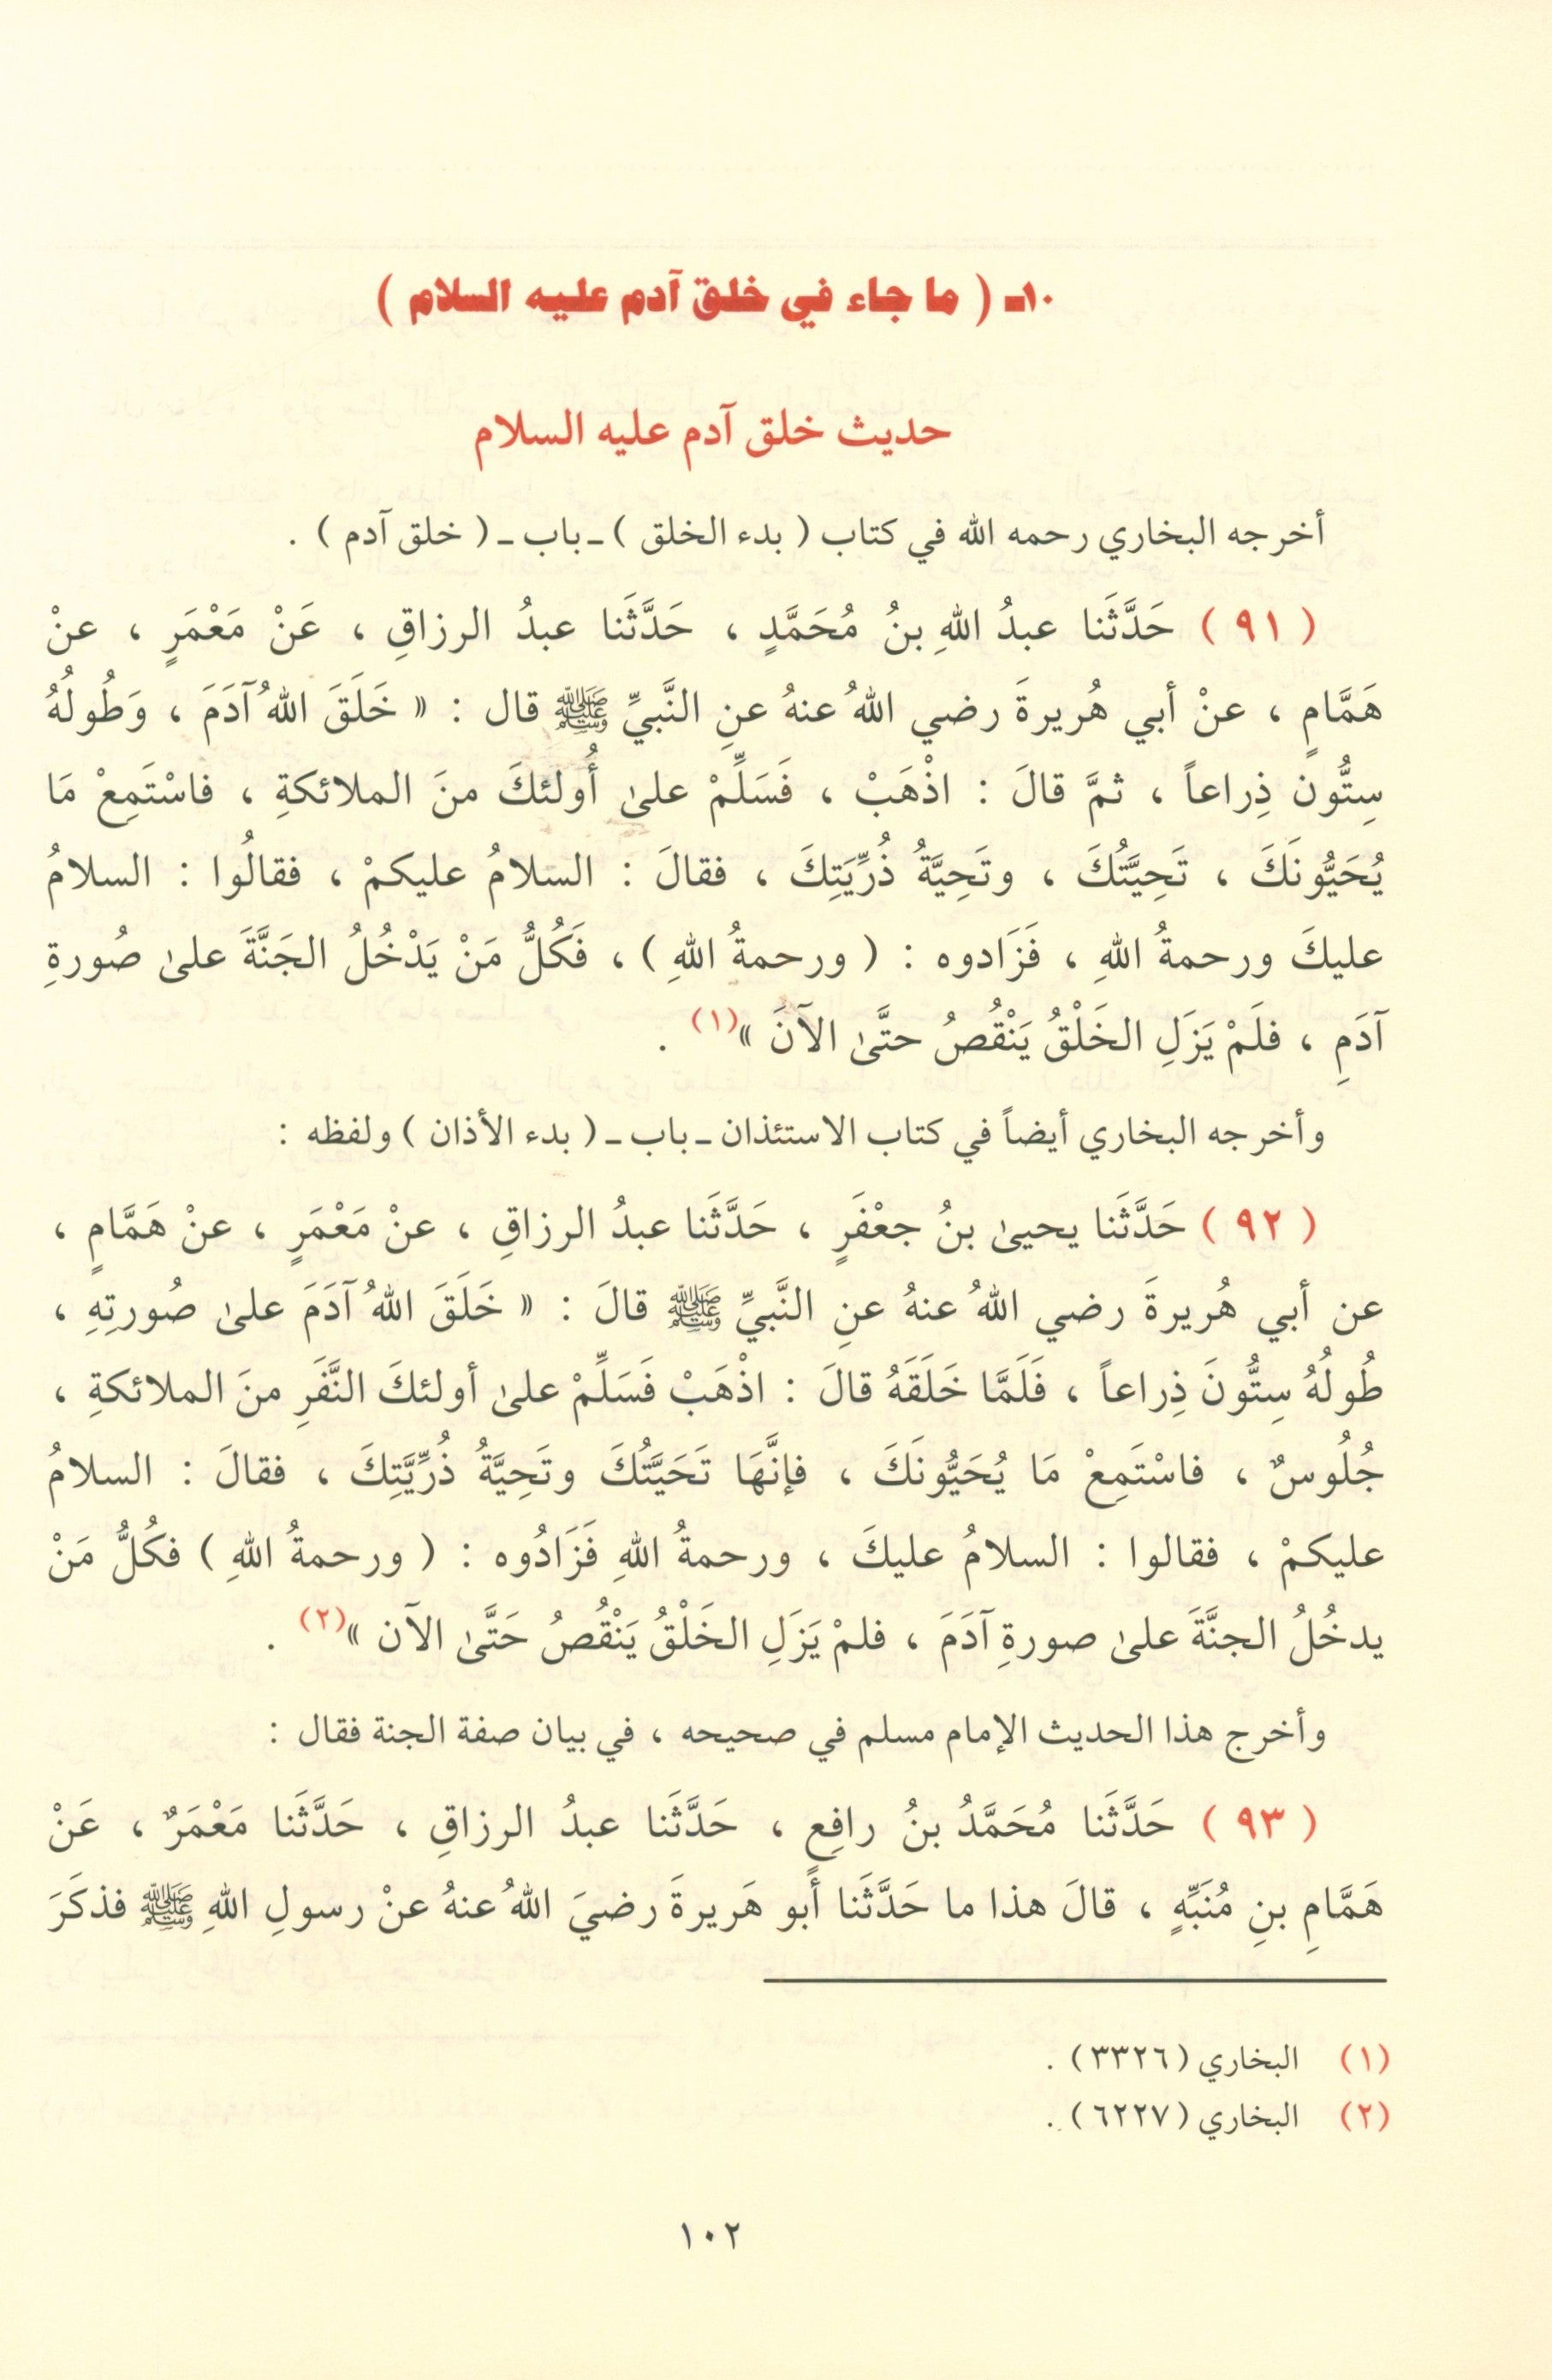 ١٠ـ ( ما جاء في خلق آدم عليه السلام )
حديث خلق آدم عليه السلام
أخرجه البخاري رحمه الله في كتاب ( بدء الخلق ) ـ باب ـ ( خلق آدم ) .
( ٩١ ) حَدَّثَنا عبدُ اللهِ بنُ مُحَمَّدٍ ، حَدَّثَنا عبدُ الرزاقِ ، عَنْ مَعْمَرٍ ، عنْ
هَمَّامٍ ، عنْ أبي هُريرةَ رضي اللهُ عنهُ عنِ النَّبيِّ ﷺ قال : « خَلَقَ اللهُ آدَمَ ، وَطُولُهُ
سِتُّون ذِراعاً ، ثمَّ قالَ : اذْهَبْ ، فَسَلِّمْ علىٰ أُولئكَ منَ الملائكةِ ، فاسْتَمِعْ مَا
يُحَيُّونَكَ ، تَحِيَّتُكَ ، وتَحِيَّةُ ذُرِّيَتِكَ ، فقالَ : السلامُ عليكمْ ، فقالُوا : السلامُ
عليكَ ورحمةُ اللهِ ، فَزَادوه : ( ورحمةُ اللهِ ) ، فَكُلُّ مَنْ يَدْخُلُ الجَنَّةَ علىٰ صُورةِ
آدَمِ ، فلَمْ يَزَلِ الخَلْقُ يَنْقُصُ حتَّىٰ الآنَ »(١) .
وأخرجه البخاري أيضاً في كتاب الاستئذان ـ باب ـ ( بدء الأذان ) ولفظه :
( ٩٢ ) حَدَّثَنا يحيىٰ بنُ جعْفَرٍ ، حَدَّثَنا عبدُ الرزاقِ ، عنْ مَعْمَرٍ ، عنْ هَمَّامٍ ،
عن أبي هُريرةَ رضي اللهُ عنهُ عنِ النَّبيِّ ﷺ قالَ : « خَلَقَ اللهُ آدَمَ علىٰ صُورتِهِ ،
طُولُهُ سِتُّونَ ذِراعاً ، فَلَمَّا خَلَقَهُ قالَ : اذْهَبْ فَسَلِّمْ علىٰ أولئكَ النَّفَرِ منَ الملائكةِ ،
جُلُوسٌ ، فاسْتَمِعْ مَا يُحَيُّونَكَ ، فإنَّهَا تَحَيَّتُكَ وتَحِيَّةُ ذُرِّيَّتِكَ ، فقالَ : السلامُ
عليكمْ ، فقالوا : السلامُ عليكَ ، ورحمةُ اللهِ فَزَادُوه : ( ورحمةُ اللهِ ) فكُلُّ مَنْ
يدخُلُ الجنَّةَ علىٰ صورةِ آدَمَ ، فلمْ يَزَلِ الخَلْقُ يَنْقُصُ حَتَّىٰ الآن »(٢) .
وأخرج هذا الحديث الإمام مسلم في صحيحه ، في بيان صفة الجنة فقال :
( ٩٣ ) حَدَّثَنا مُحَمَّدُ بنُ رافِعٍ ، حَدَّثَنا عبدُ الرزاقِ ، حَدَّثَنا مَعْمَرٌ ، عَنْ
هَمَّامِ بنِ مُنَبِّهٍ ، قالَ هذا ما حَدَّثَنا أبو هَريرةَ رضيَ اللهُ عنهُ عنْ رسولِ اللهِ ﷺ فذكَرَ
(١) البخاري (٣٣٢٦) .
(٢) البخاري (٦٢٢٧) .
١٠٢